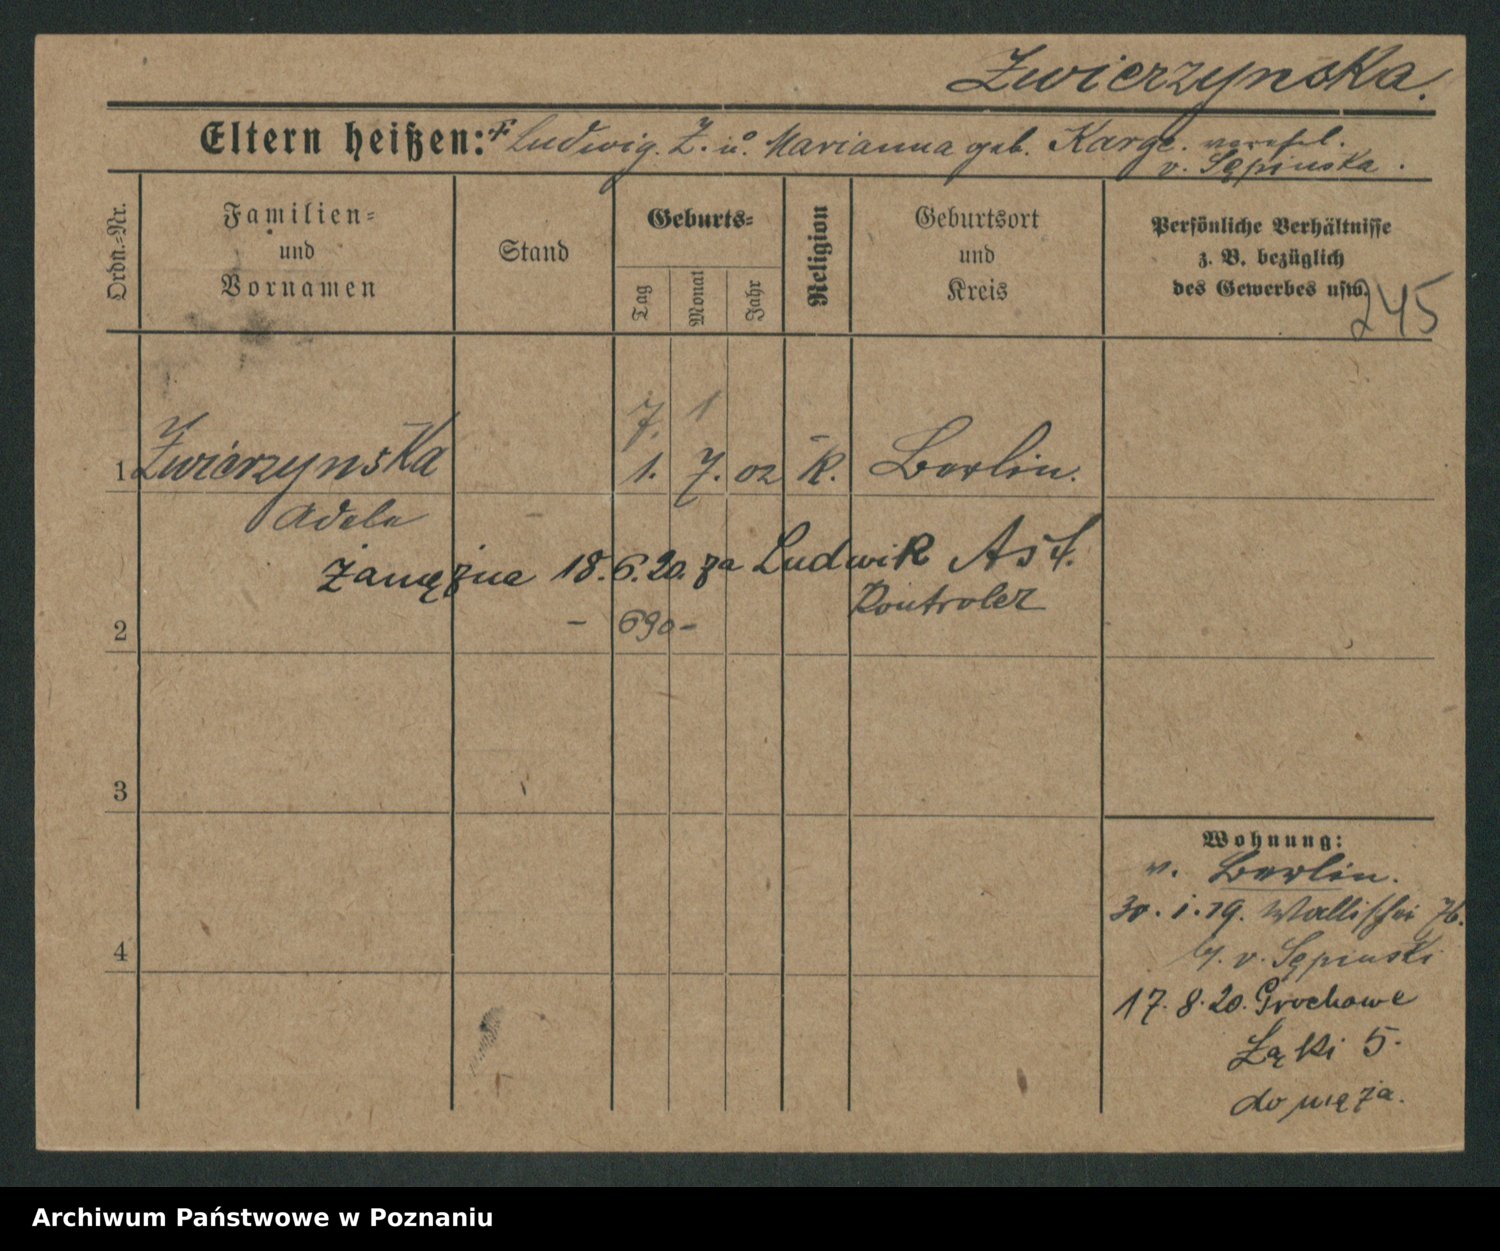 Zwierzyńska.
Eltern heißen: + Ludwig. Z. u. Marianna geb. Karge. verehel.
v. Sępinska.
Ordn.-Nr.
Familien-
und
Vornamen
Stand
Geburts-
Tag
Monat
Jahr
Religion
Geburtsort
und
Kreis
Persönliche Verhältnisse
z. B. bezüglich
des Gewerbes usw.
245
7. 1
1 Zwierzyńska 1. 7. 02 K. Berlin.
Adele
zamężna 18.6.20. za Ludwik Ast.
Kontroler
2 - 690 -
3
4
Wohnung:
v. Berlin.
30.1.19. Wallischei 76.
b. v. Sępinski
17.8.20. Grochowe
Łąki 5.
do męża.
Archiwum Państwowe w Poznaniu